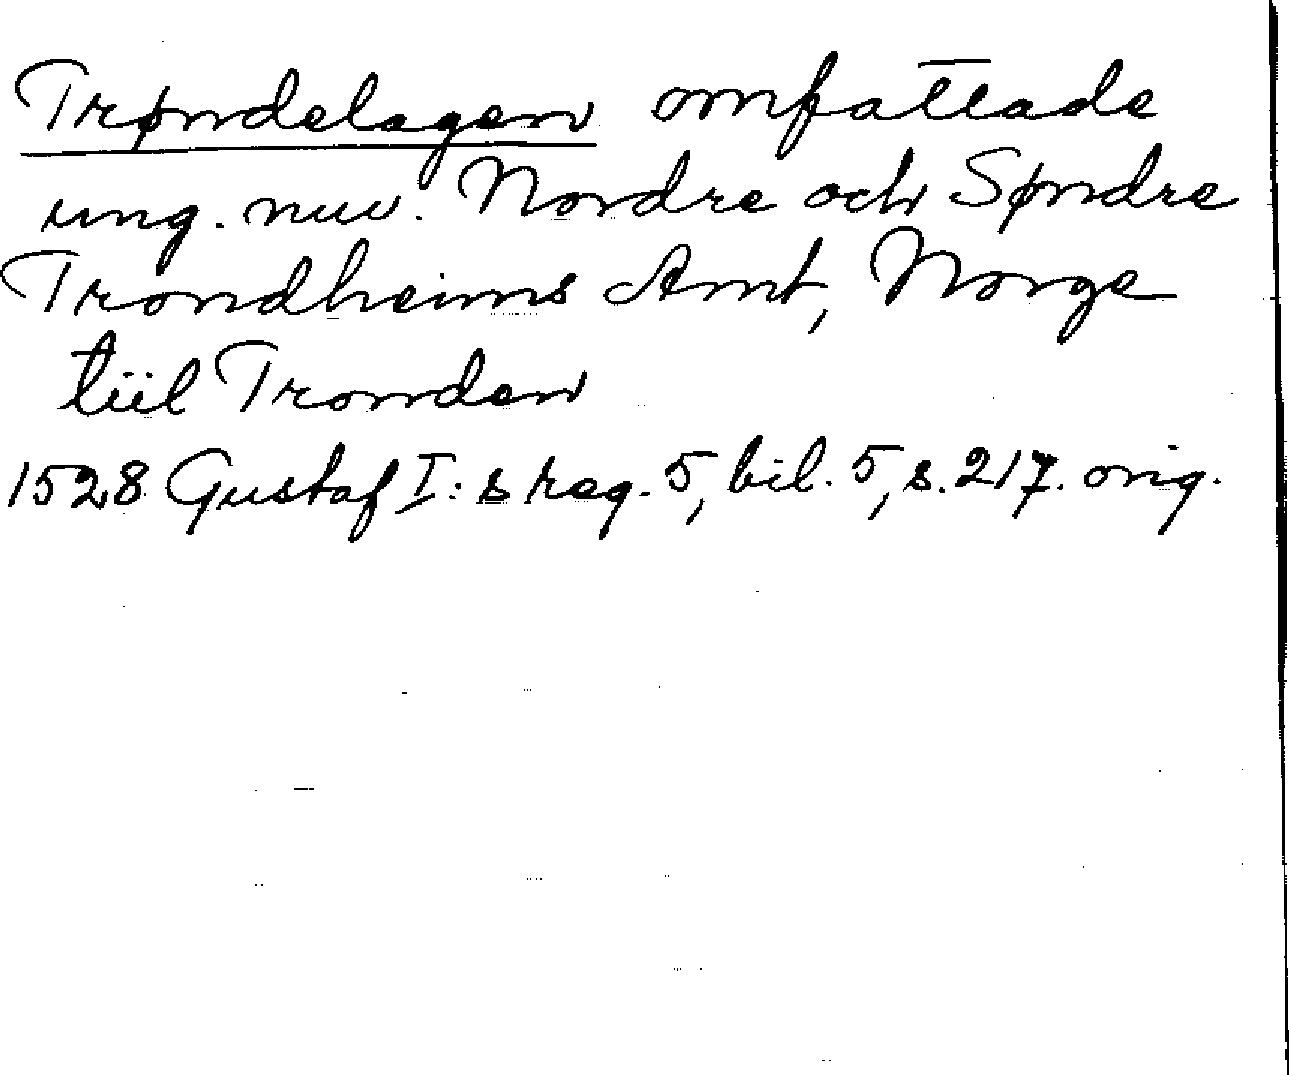 Trøndelagen omfattade
ung. nuv. Nordre och Søndre
Trondheims Amt, Norge
tiil Tronden
1528 Gustaf I:s reg. 5, bil. 5, s. 217. orig.